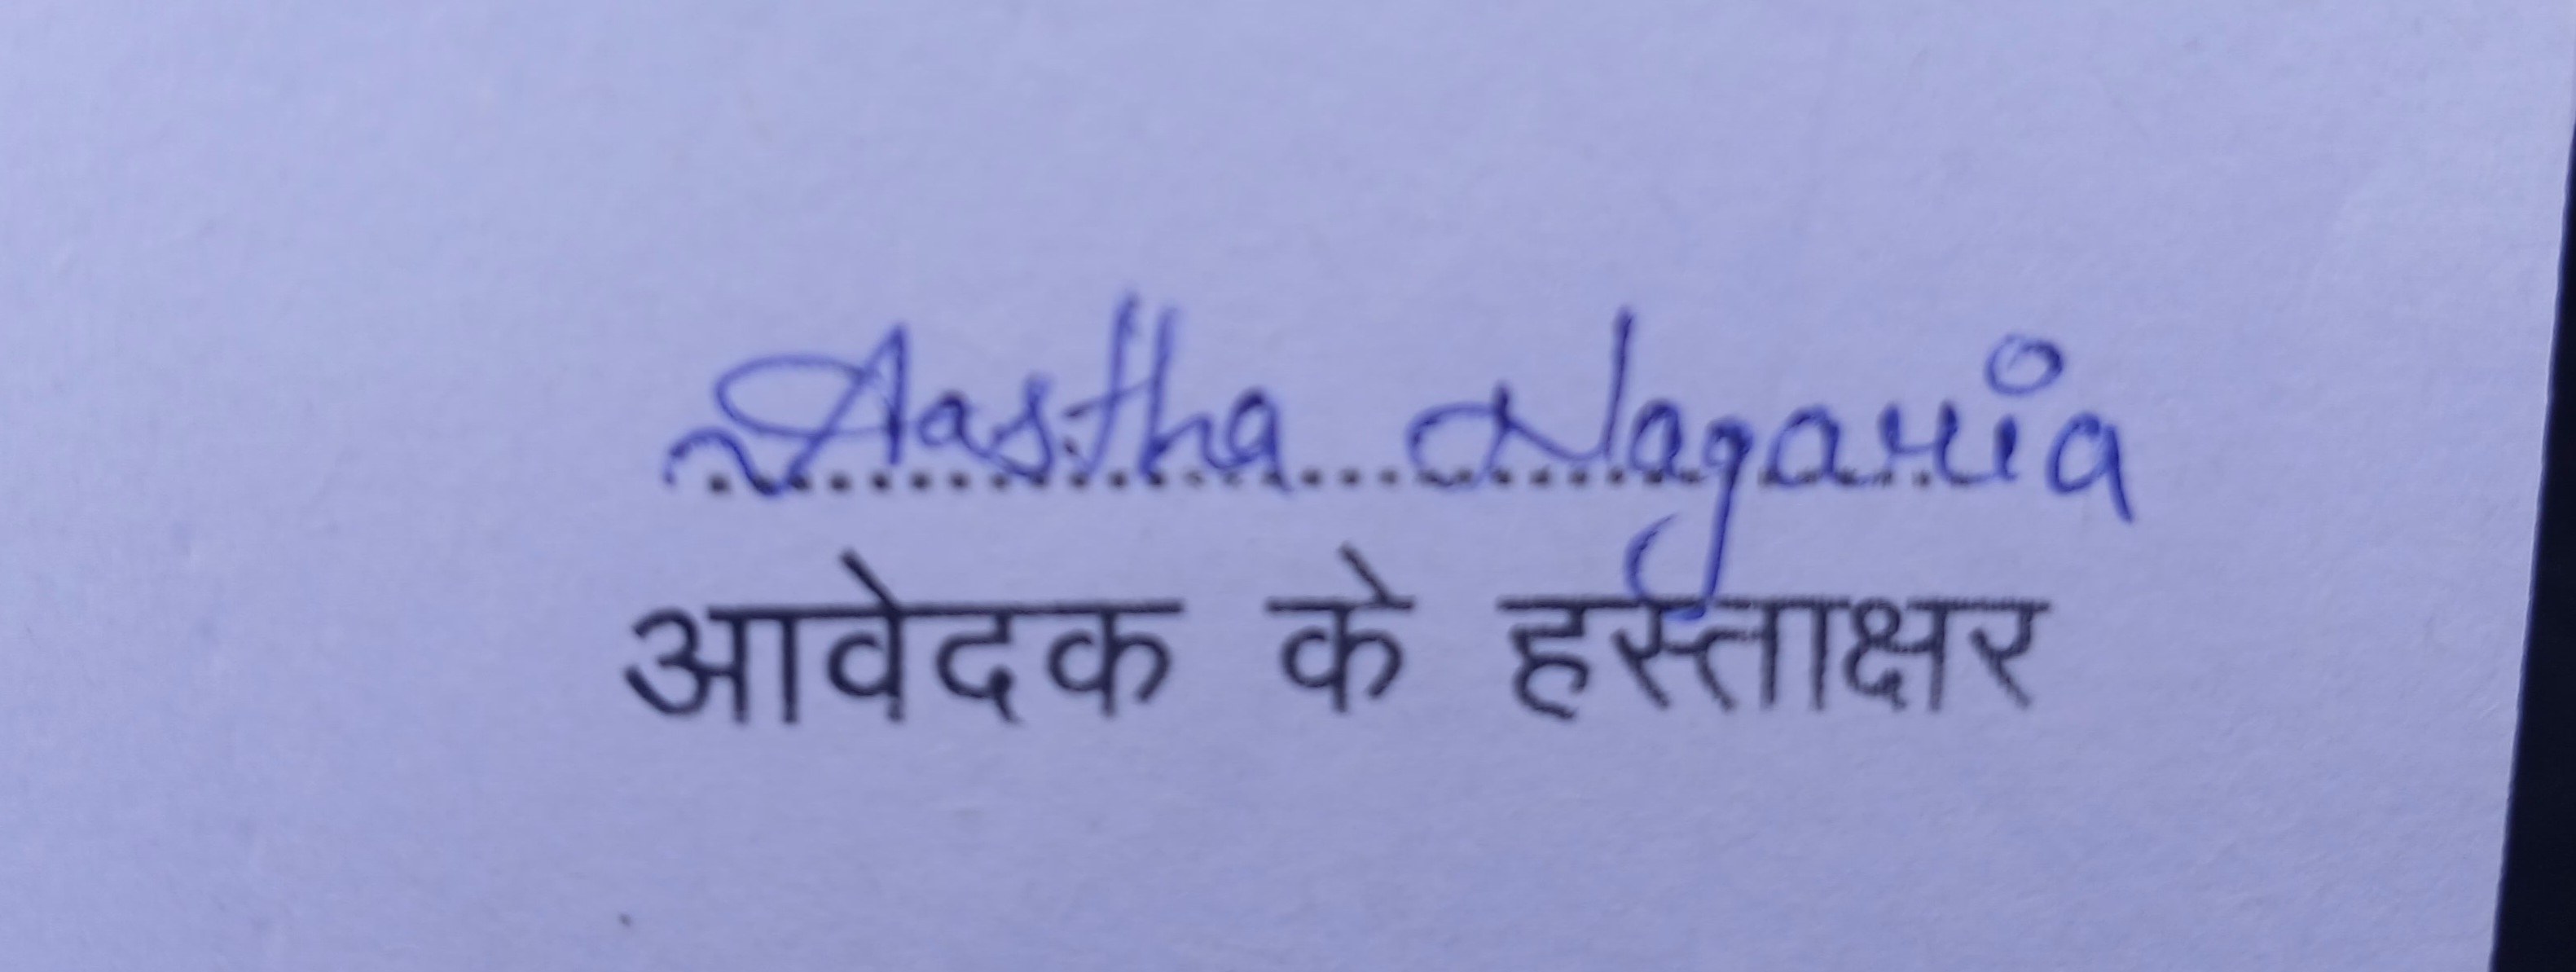 Aastha Nagaria
आवेदक के हस्ताक्षर